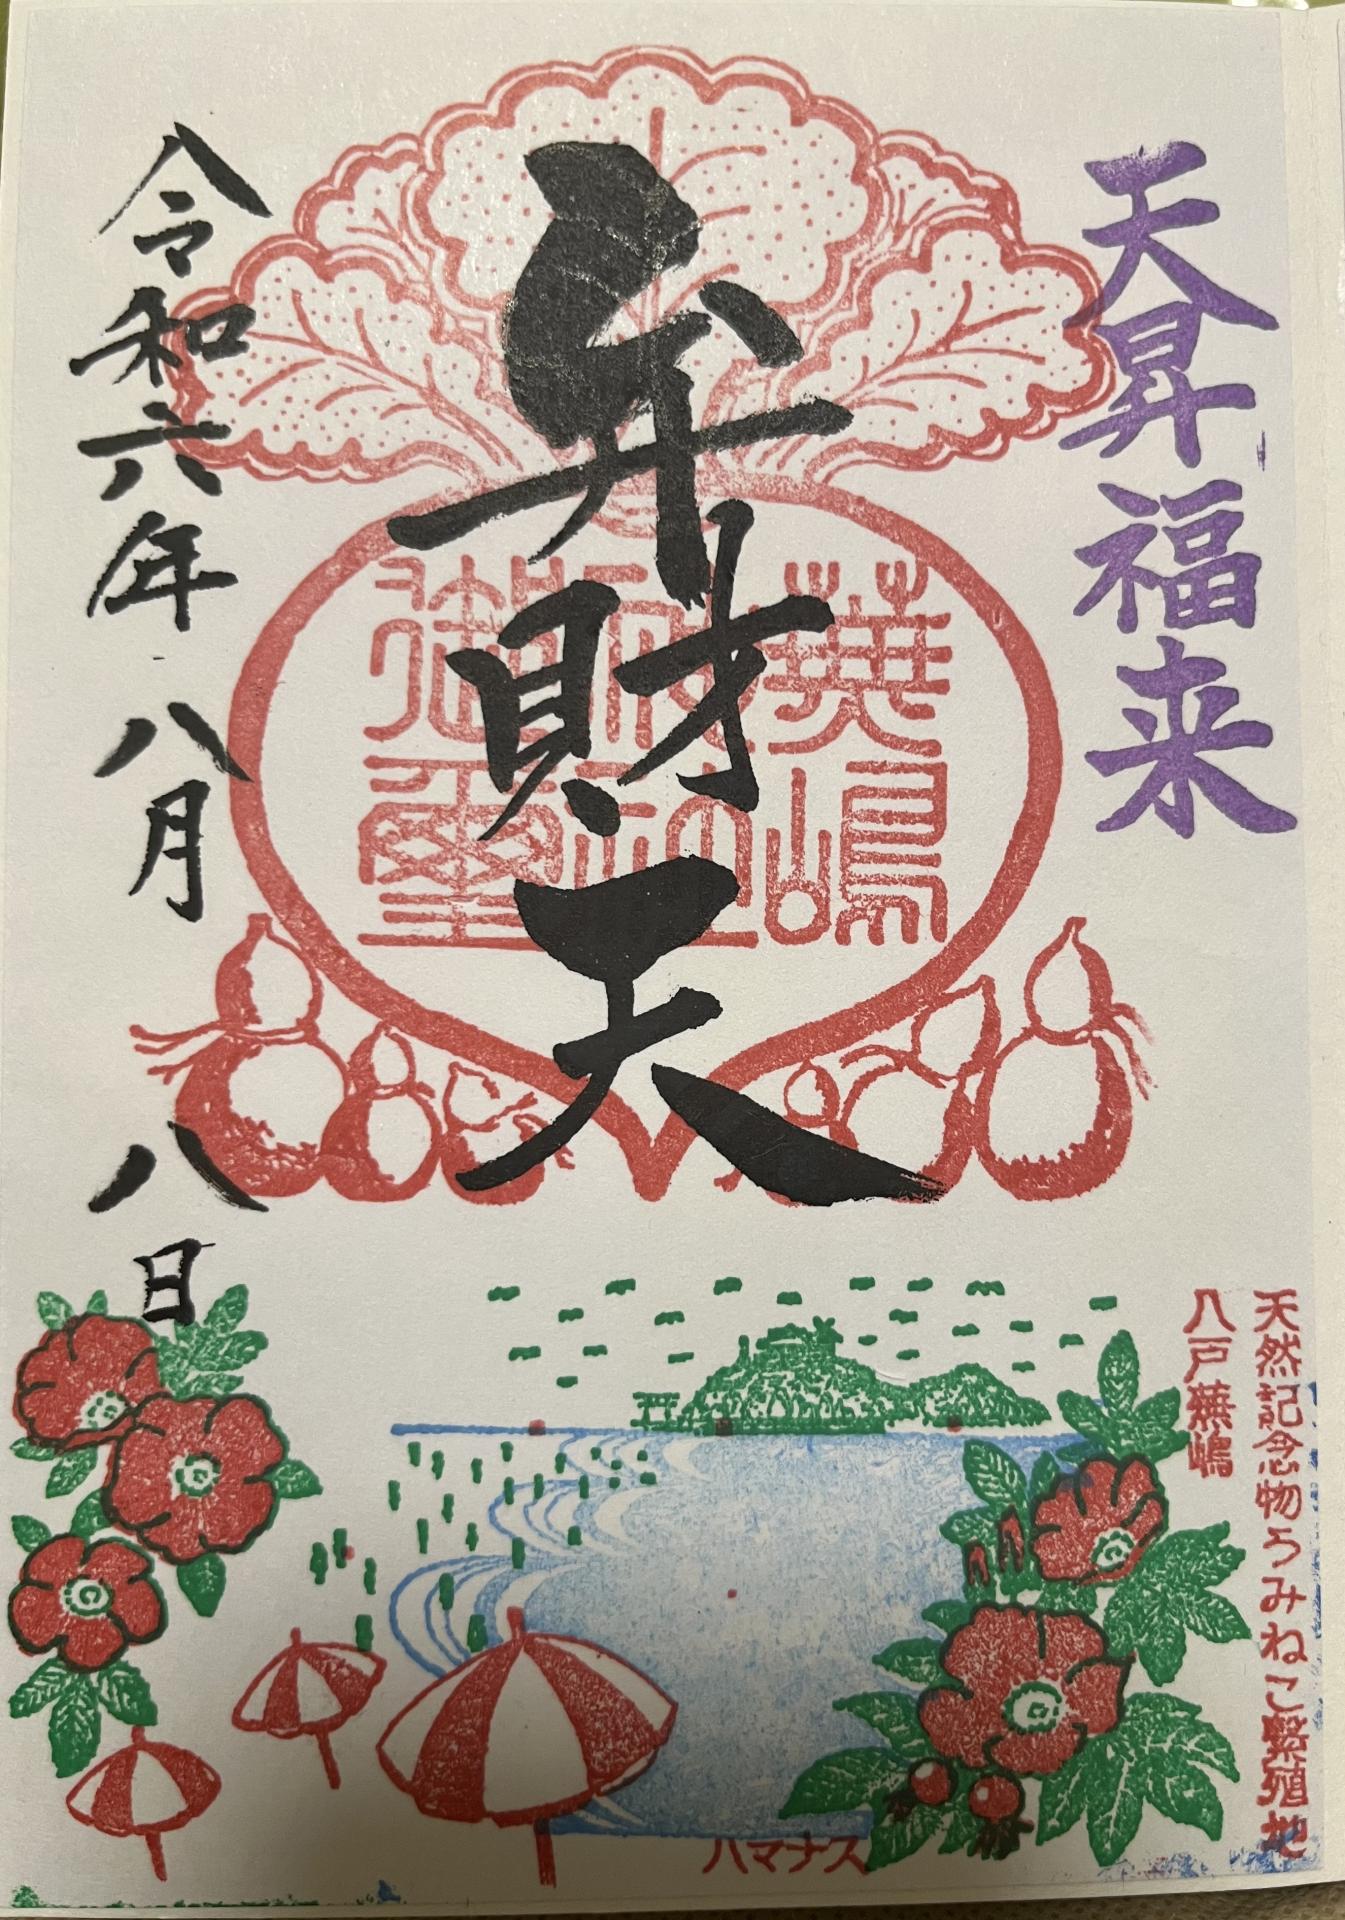 天昇福来
弁財天
蕪嶋
神社
御璽
令和六年 八月 八日
天然記念物うみねこ繁殖地
八戸蕪嶋
ハマナス